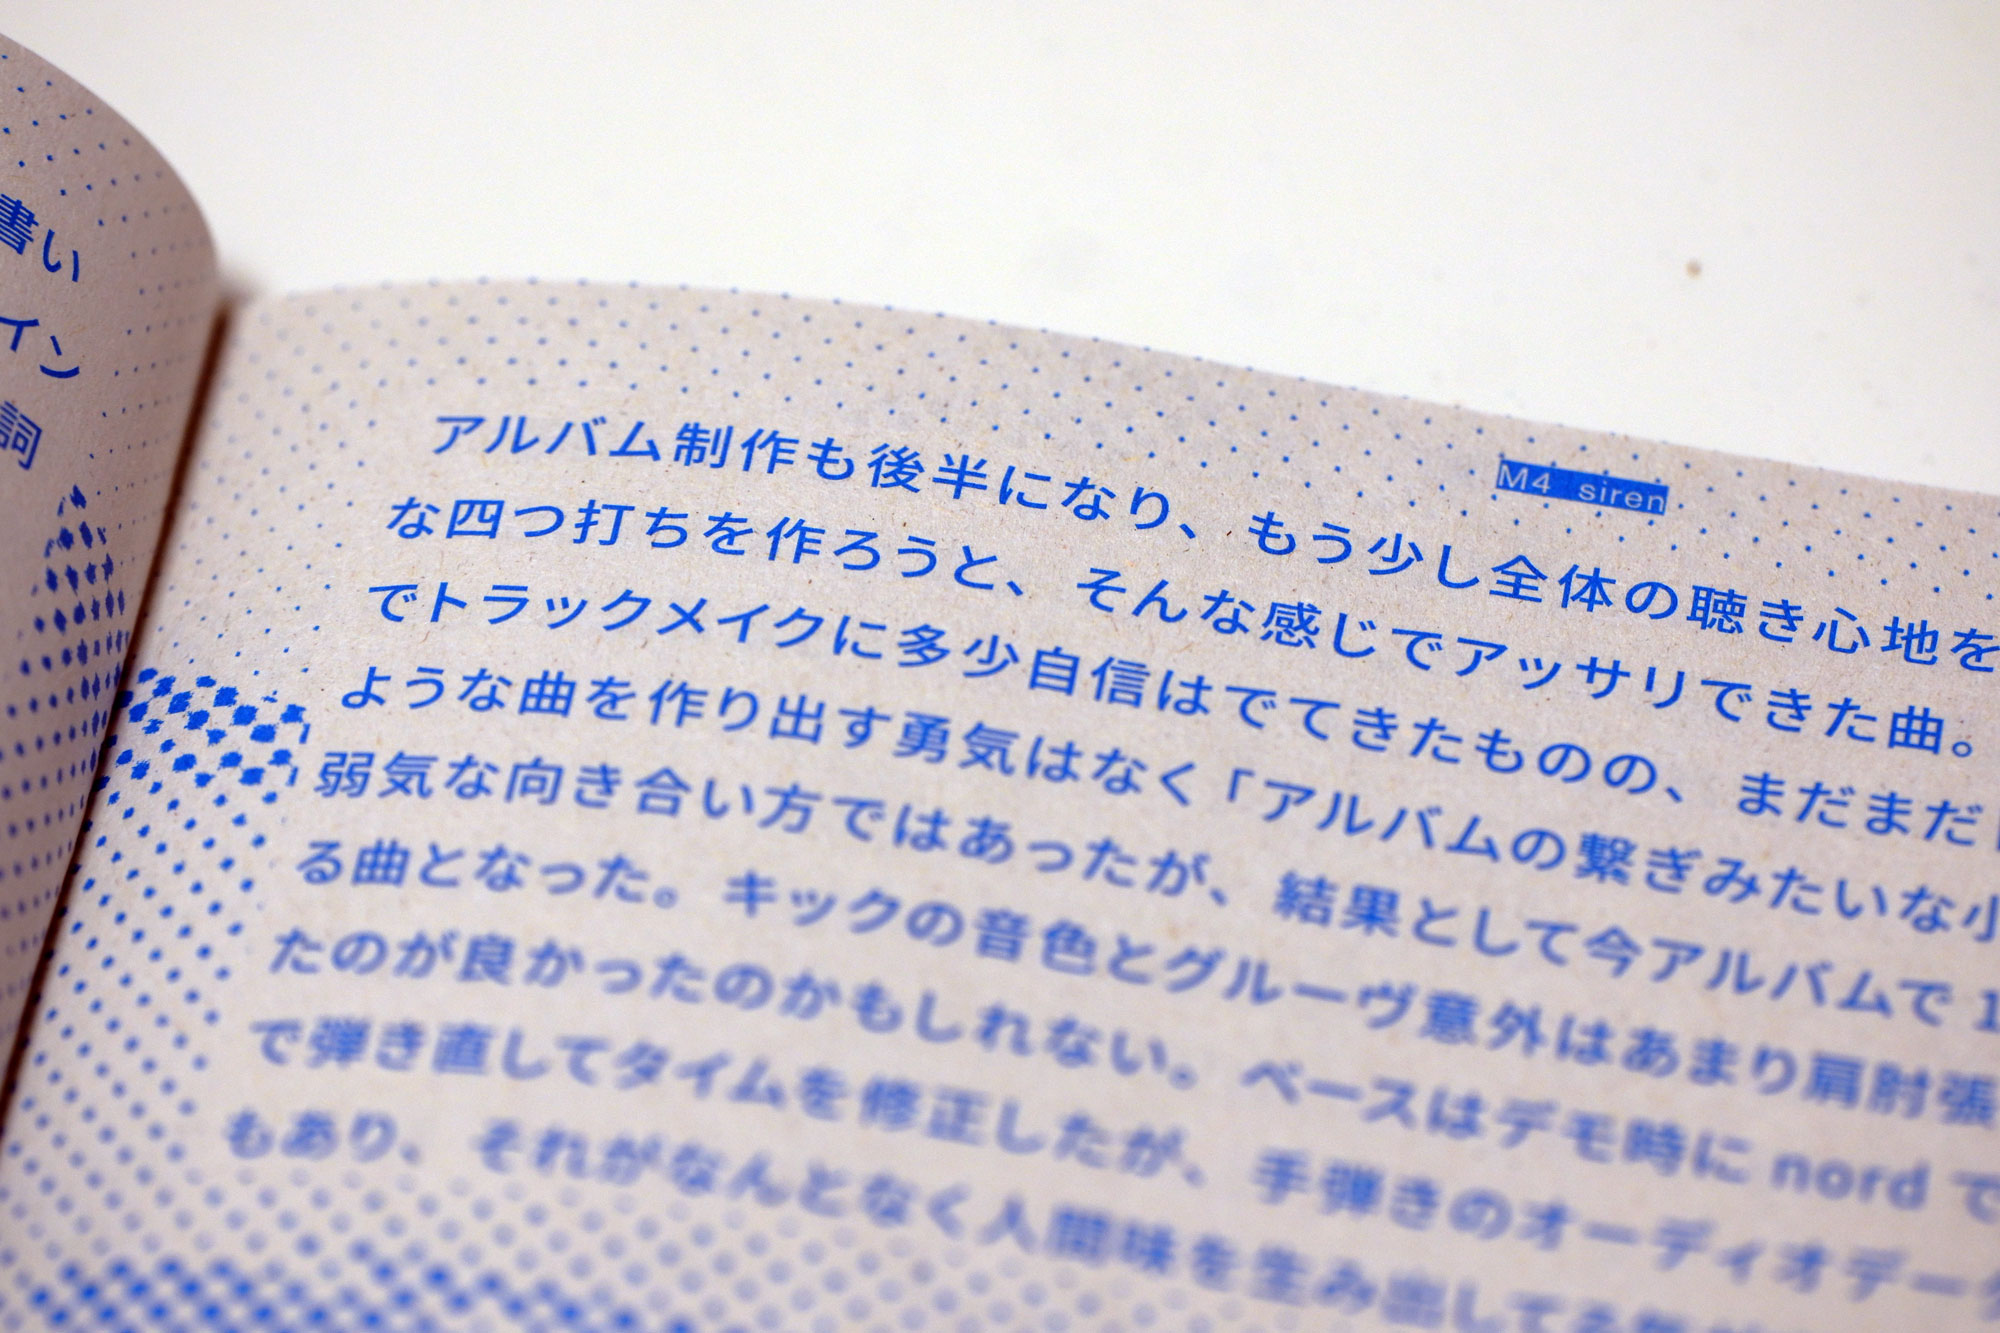 書い
イン
詞
M4 siren
アルバム制作も後半になり、もう少し全体の聴き心地を
な四つ打ちを作ろうと、そんな感じでアッサリできた曲。
でトラックメイクに多少自信はでてきたものの、まだまだ
ような曲を作り出す勇気はなく「アルバムの繋ぎみたいな小
弱気な向き合い方ではあったが、結果として今アルバムで 1
る曲となった。キックの音色とグルーヴ意外はあまり肩肘張
たのが良かったのかもしれない。ベースはデモ時に nord で
で弾き直してタイムを修正したが、手弾きのオーディオデータ
もあり、それがなんとなく人間味を生み出して